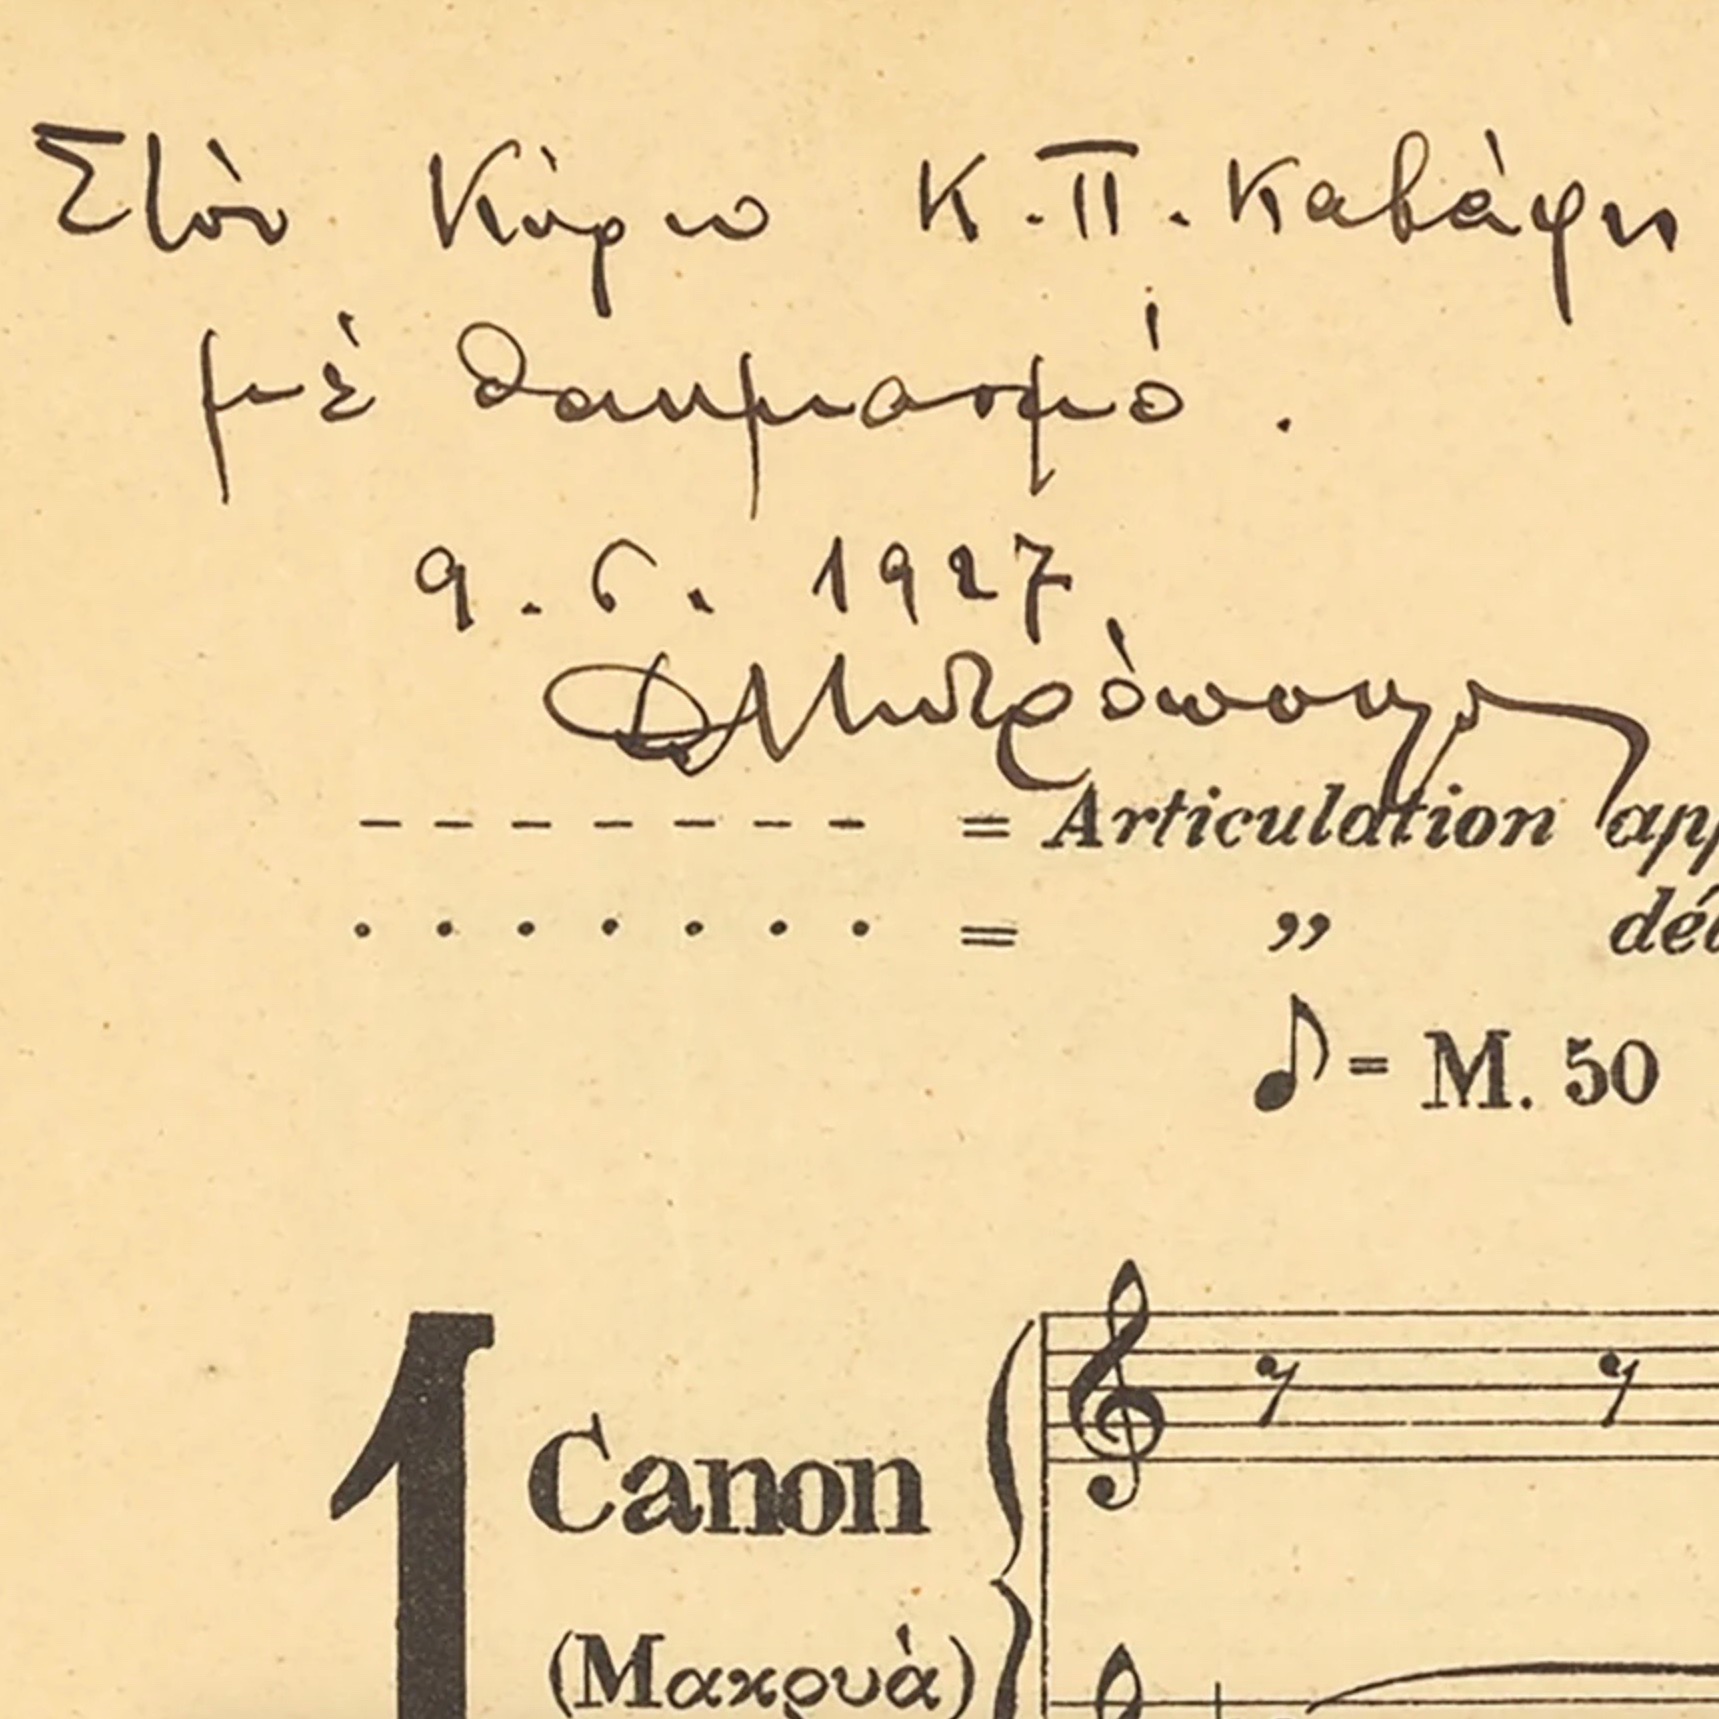 Στὸν Κύριο Κ.Π. Καβάφη
μὲ θαυμασμό.
9.6.1927
ΔΜητρόπουλος
------- = Articulation app
....... = " dé
♪ = M. 50
1 Canon
(Μακρυὰ)